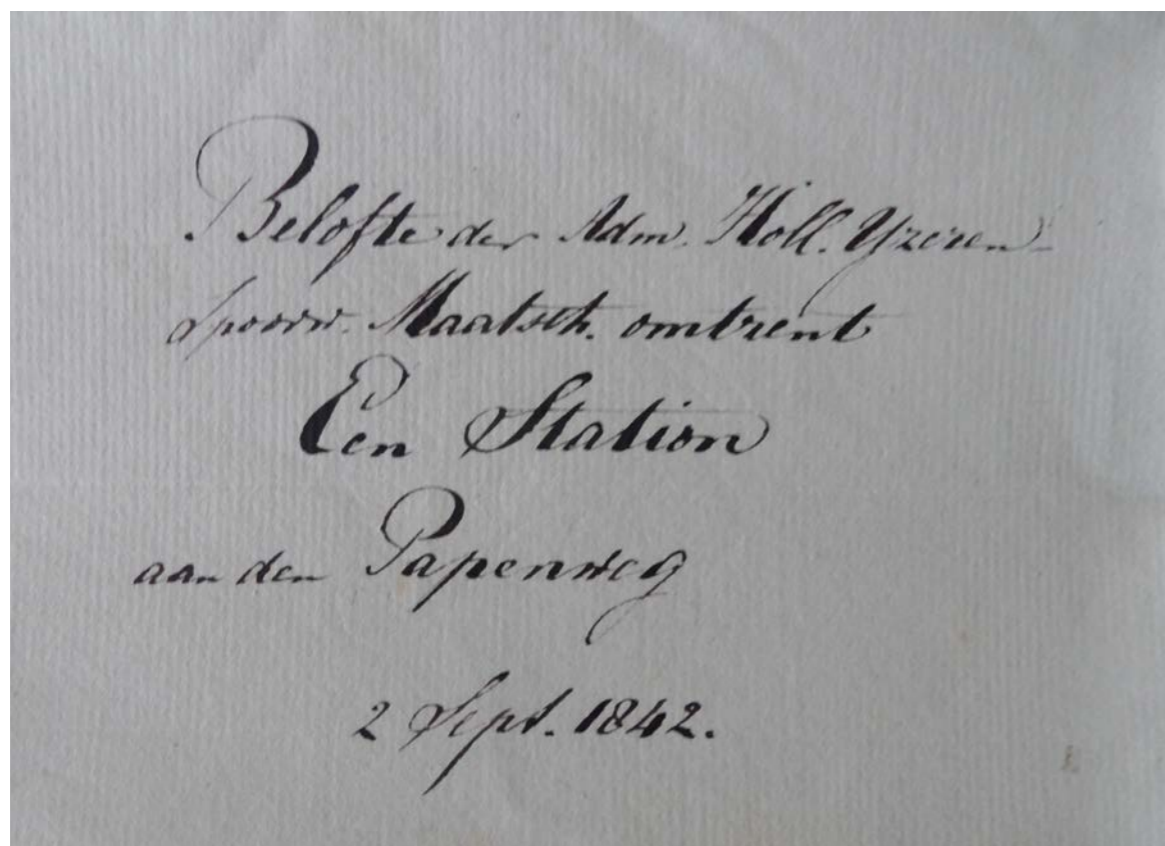 Belofte der Adm. Holl. Yzeren-
spoorw. Maatsch. omtrent
Een Station
aan den Papenweg
2 Sept. 1842.